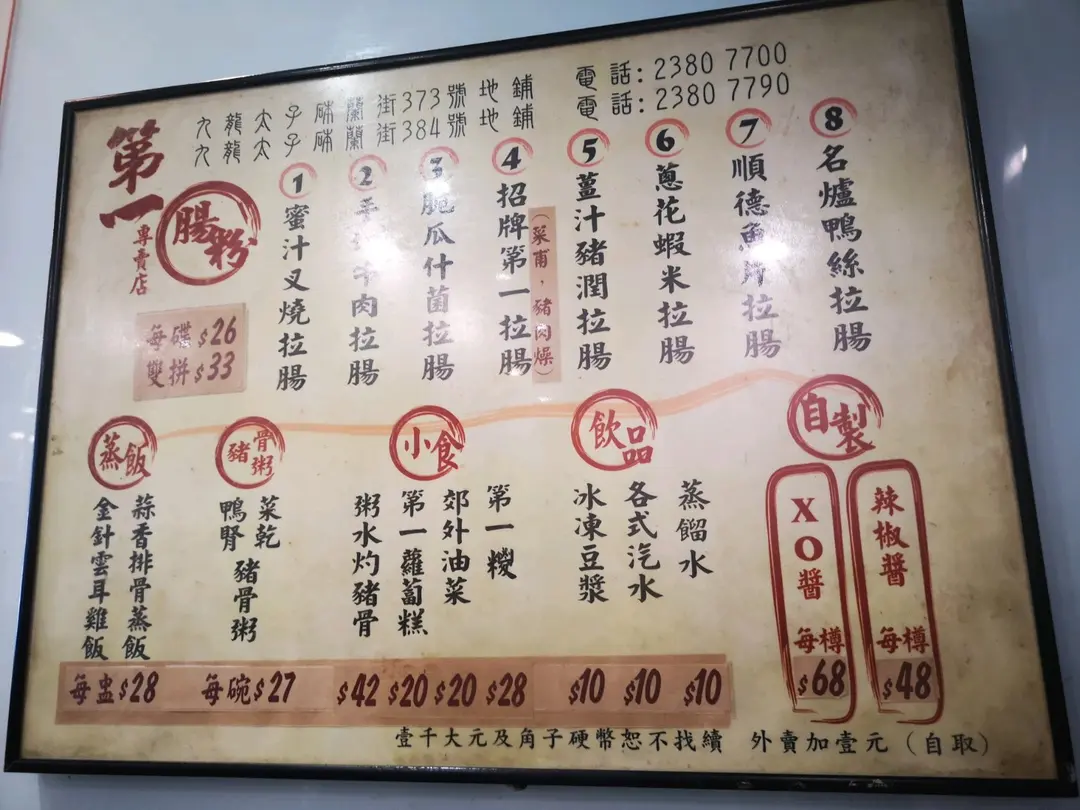 九龍太子砵蘭街373號地鋪 電話: 2380 7700
九龍太子砵蘭街384號地鋪 電話: 2380 7790
第一
腸粉
專賣店
每碟$26
雙拼$33
1 蜜汁叉燒拉腸
2 牛肉拉腸
3 脆瓜什菌拉腸
4 招牌第一拉腸
(菜甫，豬肉燥)
5 薑汁豬潤拉腸
6 蔥花蝦米拉腸
7 順德魚拉腸
8 名爐鴨絲拉腸
蒸飯
蒜香排骨蒸飯
金針雲耳雞飯
每盅$28
豬骨粥
菜乾鴨腎豬骨粥
每碗$27
小食
第一糉
郊外油菜
第一蘿蔔糕
粥水灼豬骨
$42 $20 $20 $28
飲品
蒸餾水
各式汽水
冰凍豆漿
$10 $10 $10
自製
XO醬
每樽
$68
辣椒醬
每樽
$48
壹千大元及角子硬幣恕不找續 外賣加壹元(自取)